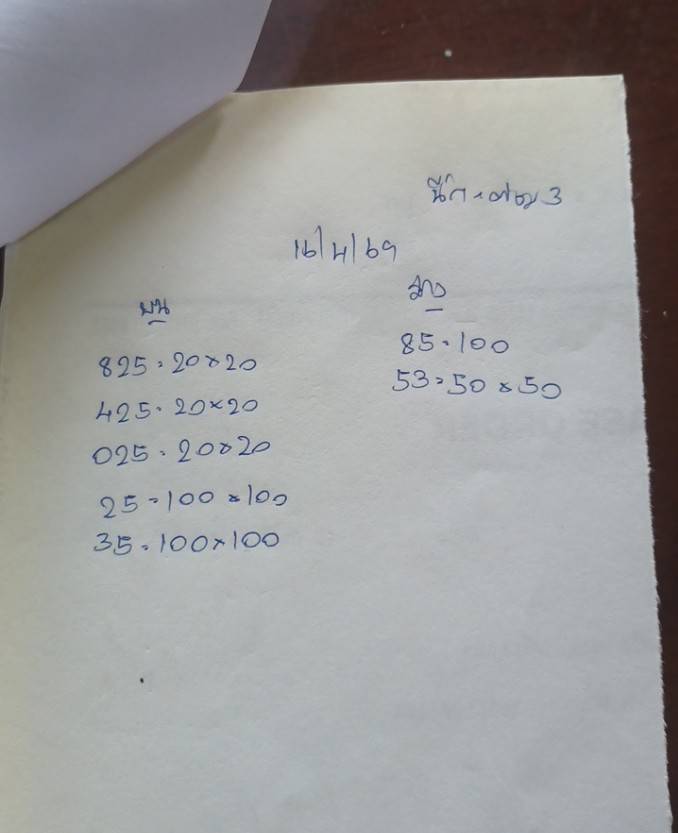 3
16/4/69
บน
825 = 20x20
425 = 20x20
025 = 20x20
25 = 100x100
35 = 100x100
ล่าง
85 = 100
53 = 50x50